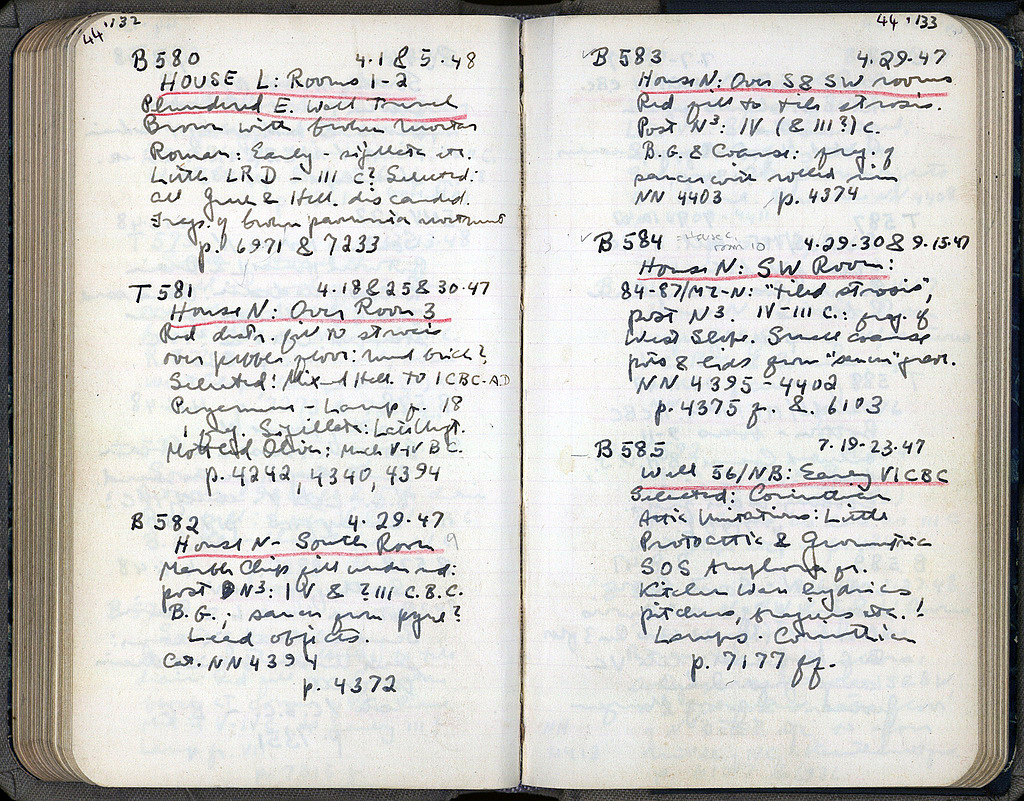 44 '132
B 580 4.1 & 5.48
HOUSE L: Rooms 1-2
Plundered E. Wall Trench
Brown with broken mortar
Roman: Early - sigillata etc.
Little LRD - III C? Selected:
all Greek & Hell. discarded.
Frags. of broken pavement
p. 6971 & 7233
T 581 4.18 & 25 & 30.47
House N: Over Room 3
Red distr. fill to strosis
over pebble floor: mud brick?
Selected: Mixed Hell. TO I CBC-AD
Pergamene - Lamp fr. 18
1 frag. Sigillata: Late Hept.
Mottled Olive: Much V-IV B.C.
p. 4242, 4340, 4394
B 582 4.29.47
House N - South Room 9
Marble Chip fill under rd:
post N³: IV & ? III C.B.C.
B.G.; saucer from pyre?
Lead objects.
Cat. NN 4394
p. 4372
44 '133
B 583 4.29.47
House N: Over S & SW rooms
Red fill to tile strosis.
Post N³: IV (& III?) C.
B.G. & Coarse: frag. of
saucer with rolled rim
NN 4403 p. 4374
B 584 = House C room 10 4.29-30 & 9.15.47
House N: SW Room:
84-87/ΜΖ-Ν: "tiled strosis",
post N³. IV-III C.: frag. of
West Slope. Small coarse
pots & lids from "saucer" grave.
NN 4395-4402
p. 4375 f. & 6103
B 585 7.19-23.47
Well 56/ΝΒ: Early VI CBC
Selected: Corinthian
Attic Imitations: Little
Protoattic & Geometric
SOS Amphora fr.
Kitchen Ware hydrias,
pitchers, frags etc.!
Lamps. Corinthian
p. 7177 ff.